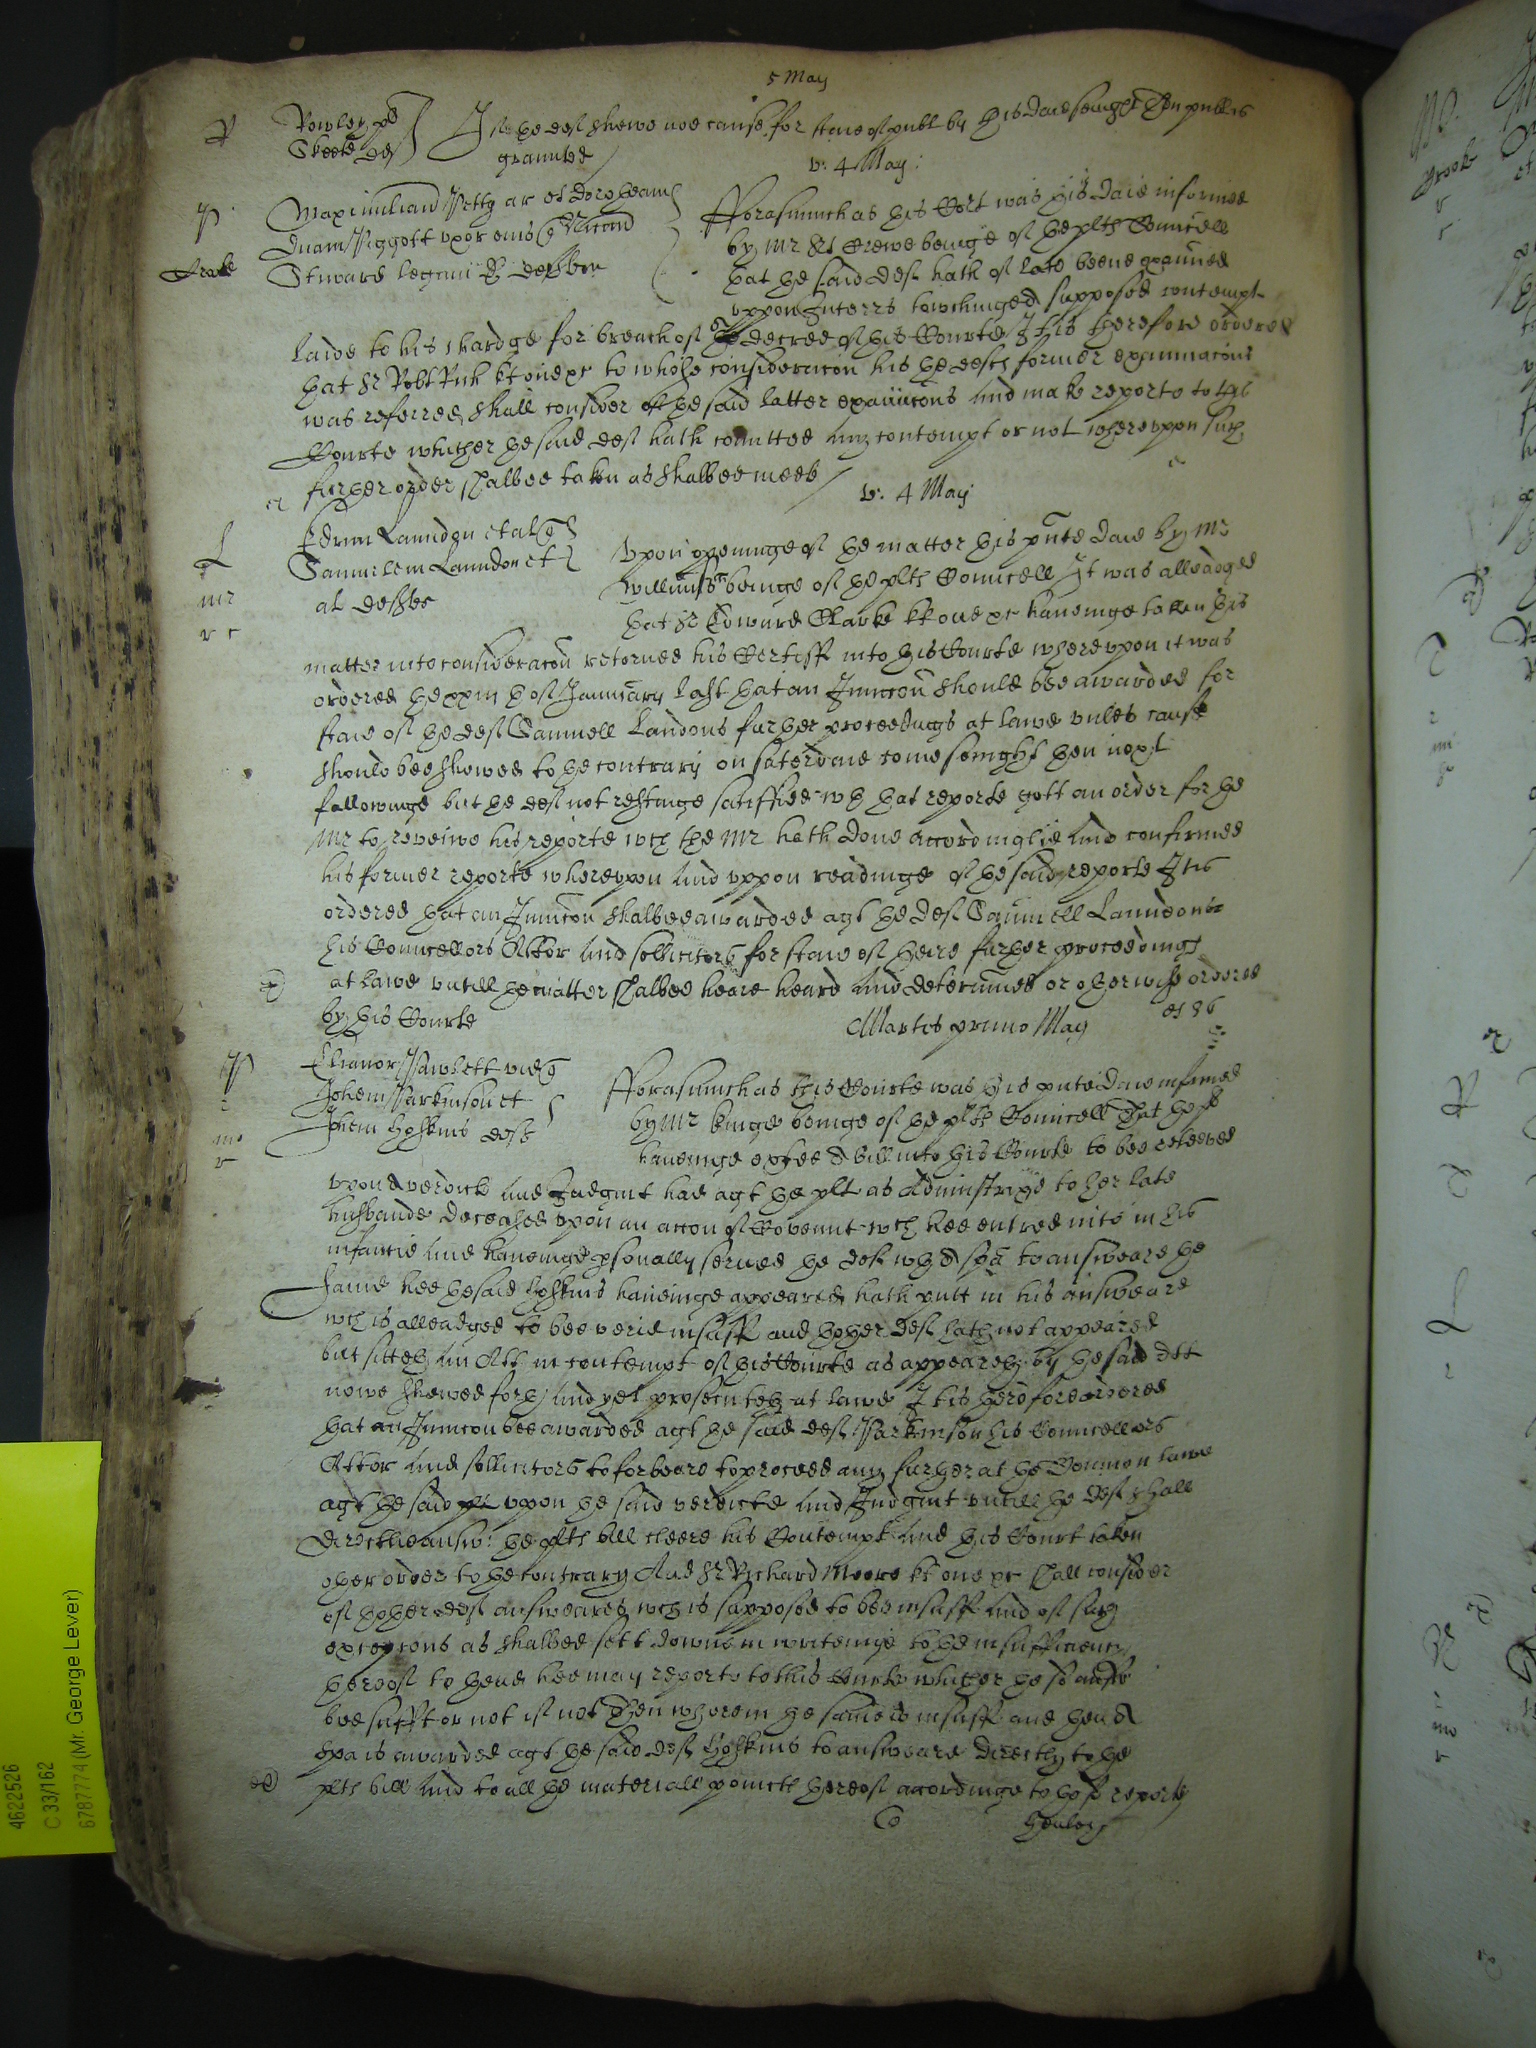 5 May
R Rowley pl
Skeele def
If the def shewe noe cause for staie of publ by this daie sevnight then public
graunted
v. 4 May
P Maximilian Petty ar et Dorotheam
quam Piggott uxor eius Quer
Steward legum D defften
fforasmuch as this Cort was this daie informed
by Mr Crewe beinge of the plts Councell
that the said def hath of late beene examined
uppon Interrs towchinge a supposed contempt
laide to his chardge for breach of the decree of this Courte It is therefore ordered
that Sr Robt Rich kt one &c to whose consideracon this the defts former examinacons
was referred shall consider of the said latter exaicons and make reporte to this
Courte whether the said def hath comitted any contempt or not whereuppon such
further order shalbee taken as shalbee meete
v. 4 May
L Edrus Laundon et al
Samuelem Laundon et
al deftes
mr
r c
Upon openinge of the matter this pnte daie by Mr
Williams beinge of the plts Councell It was alleadged
that Sr Edward Clarke kt one &c haveinge taken this
matter into consideracon retorned his Certiff into this Courte whereupon it was
ordered the xxiiith of January last that an Iniuncon should bee awarded for
staie of the def Samuell Landons further proceedings at lawe unles cause
should bee shewed to the contrary on saterdaie come sevnight then next
followinge but the def not restinge satisffied wth that reporte gott an order for the
Mr to reveiwe his reporte wch the Mr hath done accordinglie and confirmed
his former reporte whereupon and uppon readinge of the said reporte It is
ordered that an Iniuncon shalbee awarded agt the def Samuell Laundon
his Councellors Attor and sollicitors for staie of theire further proceedings
at lawe untill the matter shalbee heare heard and determined or otherwise ordered
by this Courte
Martis primo May
P Elianor Pawlett vid
Johem Parkinson et
Johem Hoskins defts
mo
r
fforasmuch as this Courte was this pnte daie informed
by Mr Kinge beinge of the plts Councell That the plt
haveinge exhited a bill into this Courte to bee releeved
upon a verdicte and Judgmt had agt the plt as Administrixe to her late
husbande deceased upon an accon of Covennt wch hee entred into in his
infancie and haveinge psonally served the defts wth a spa to answeare the
same hee the said Hoskins haveinge appeared hath putt in his answeare
wch is alleadged to bee verie insuff and thother def hath not appeared
but sitteth an Att in contempt of this Courte as appeareth by the said Att
nowe shewed forth and yet prosecuteth at lawe It is therefore ordered
that an Iniuncon bee awarded agt the said def Parkinson his Councellors
Attor and sollicitors to forbeare to proceed any further at the Common lawe
agt the said plt upon the said verdicte and Judgmt untill the def shall
directlie answ: the plts bill cleere his Contempt and this Court taken
other order to the contrary And Sr Richard Moore kt one &c shall consider
of thother defts answeare wch is supposed to bee insuff and of such
excepcons as shalbee sett downe in writeinge to the insufficiency
thereof to thend hee may reporte to this Courte whether the sd answ
bee sufft or not if not Then wherein the same is insuff and then a
spa is awarded agt the said def Hoskins to answeare directly to the
plts bill and to all the materiall points thereof accordinge to the sd reporte
Co Henley
4622526
C 33/162
6787774 (Mr. George Lever)